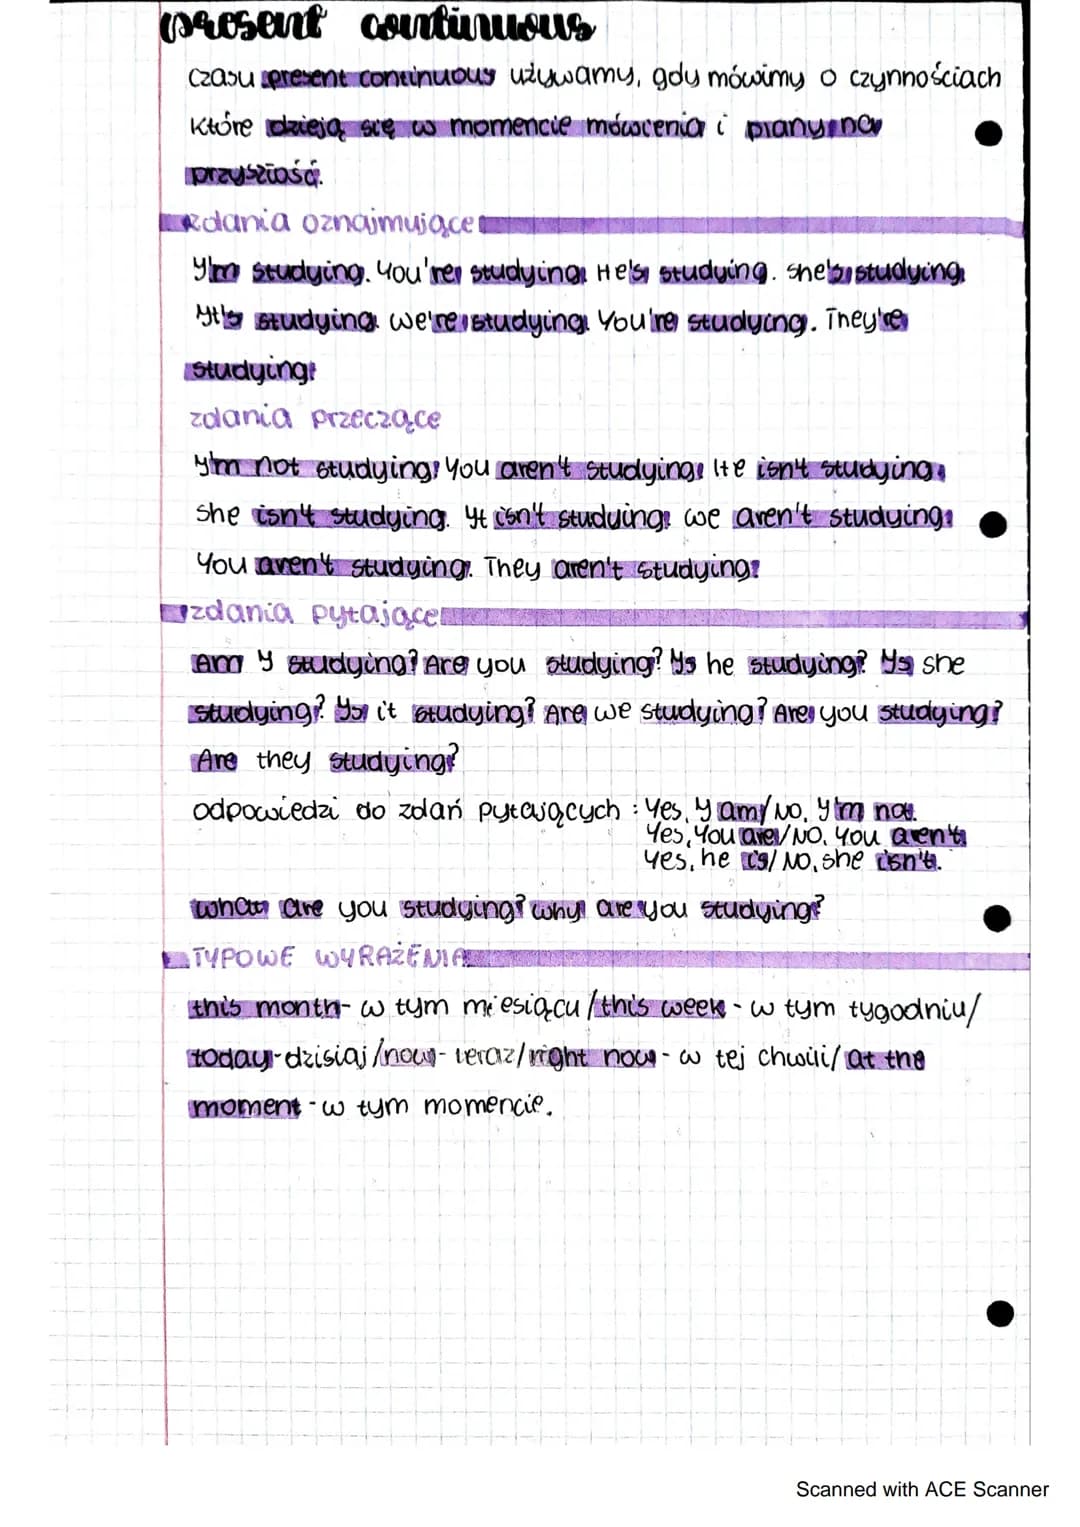 present continuous
czasu present continuous używamy, gdy mówimy o czynnościach
które dzieją się w momencie mówienia i plany na
przyszłość.
zdania oznajmujące
I'm studying. You're studying. He's studying. she's studying.
It's studying. we're studying. You're studying. They're
studying.
zdania przeczące
I'm not studying. You aren't studying. He isn't studying.
she isn't studying. It isn't studying. we aren't studying.
You aren't studying. They aren't studying.
zdania pytające
Am I studying? Are you studying? Is he studying? Is she
studying? Is it studying? Are we studying? Are you studying?
Are they studying?
odpowiedzi do zdań pytających : Yes, I am/ No, I'm not.
Yes, You are/ No, You aren't.
Yes, he is/ No, she isn't.
what are you studying? why are you studying?
TYPOWE WYRAŻENIA
this month- w tym miesiącu / this week - w tym tygodniu/
today-dzisiaj /now- teraz/ right now - w tej chwili/ at the
moment - w tym momencie.
Scanned with ACE Scanner